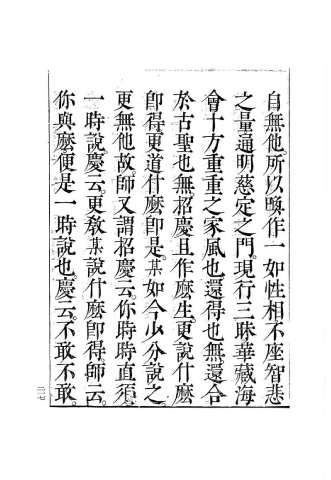 自無他所以喚作一如性相不座智悲
之量通明慈定之門現行三昧華藏海
會十方重重之家風也還得也無還合
於古聖也無招慶且作麽生更說什麽
即得更道什麽即是某如今少分說之
更無他故師又謂招慶云你時時直須
一時說慶云更教某說什麽即得師云
你與麽便是一時說也慶云不敢不敢
二七